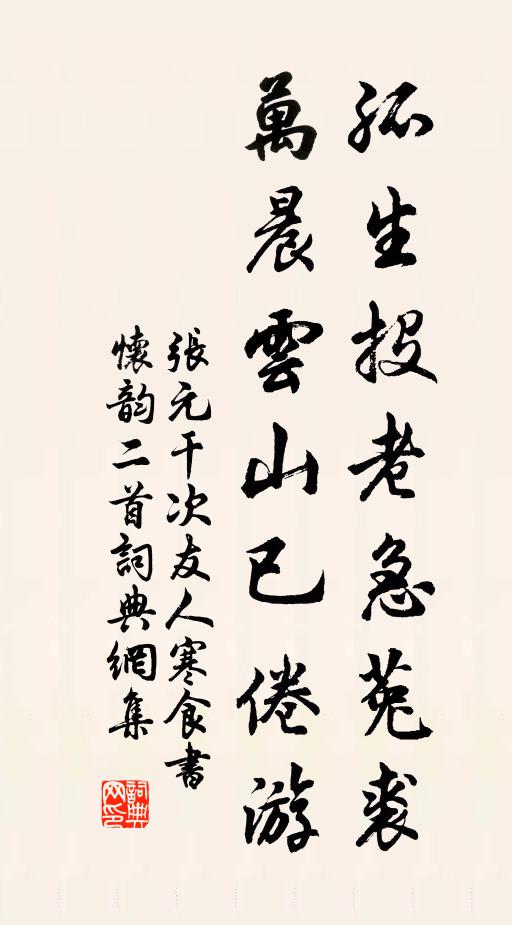 孤生投老急菟裘
萬晨雲山已倦游
張元干次友人寒食書
懷韵二首詞典網集
詞典
网印